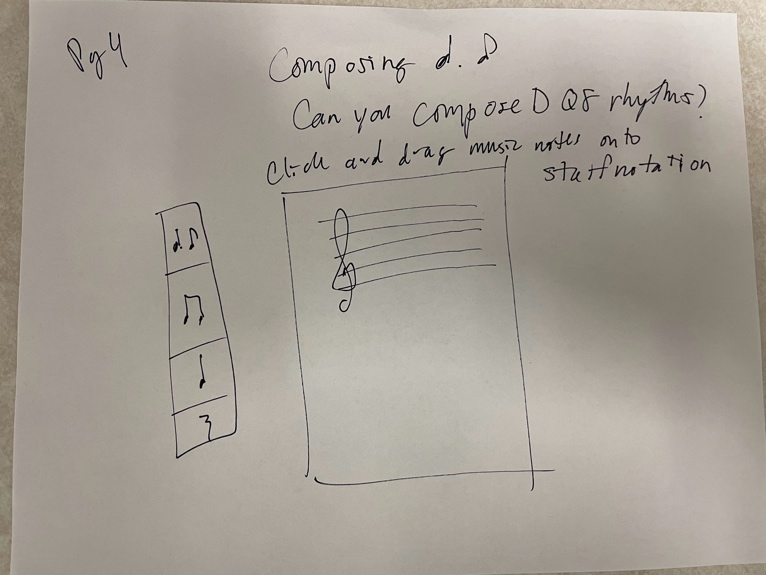 Pg 4
Composing ♩. ♪
Can you compose D Q8 rhythms?
Click and drag music notes onto
staff notation